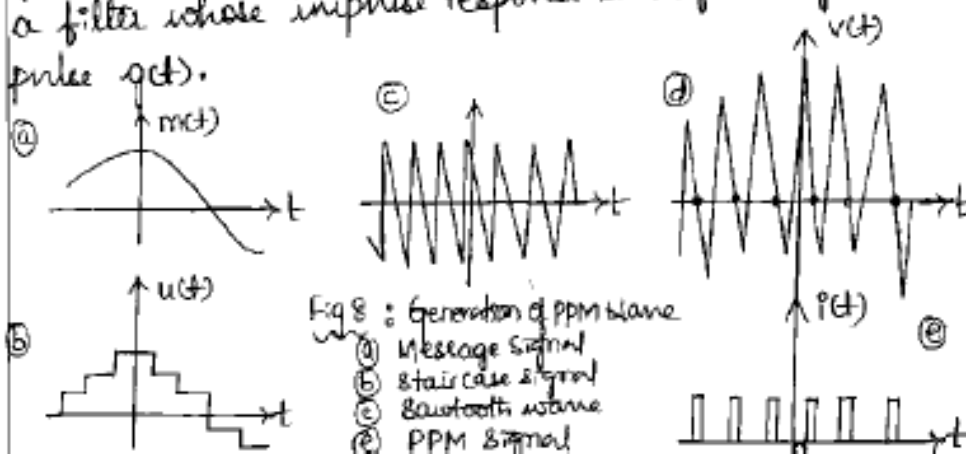 a filter whose impulse response is
pulse g(t).
a
m(t)
t
c
t
d
v(t)
t
b
u(t)
t
Fig 8 : Generation of PPM wave
a Message Signal
b Staircase signal
c Sawtooth wave
e PPM Signal
i(t)
e
t